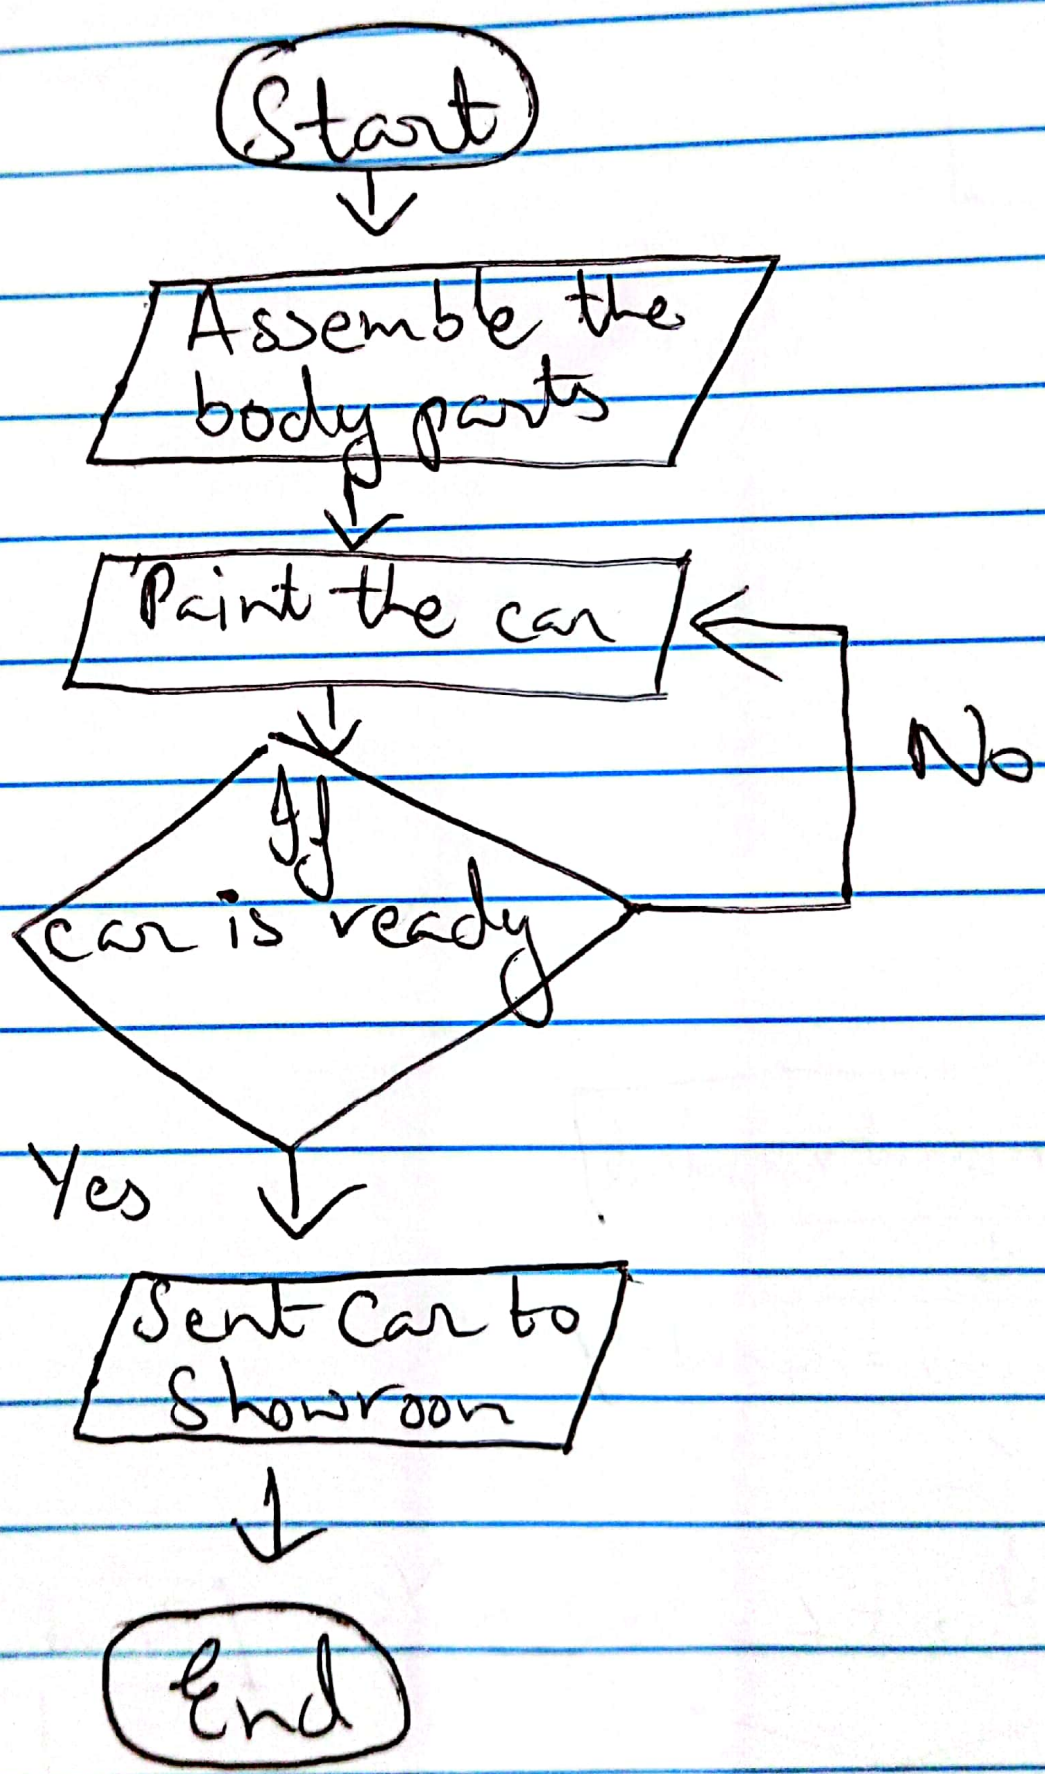 Start
Assemble the
body parts
Paint the car
No
If
car is ready
Yes
Sent Car to
Showroom
End